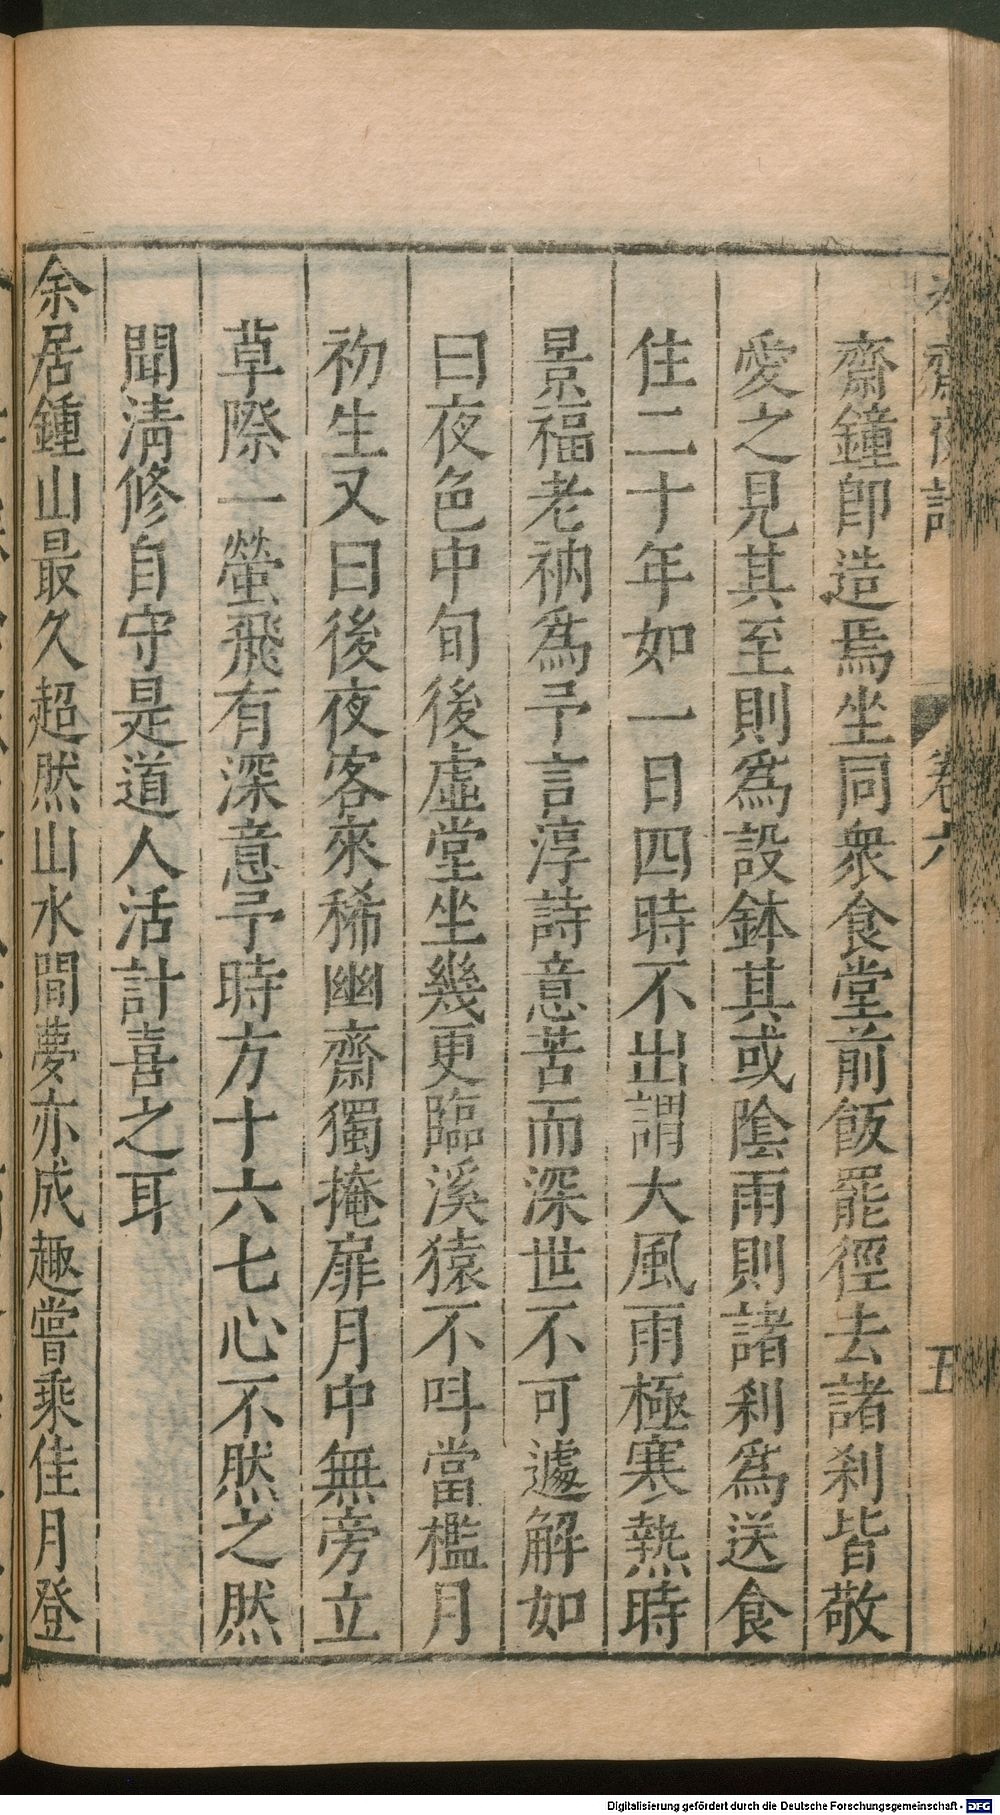 冷齋夜話 卷六 五
齋鐘卽造焉坐同衆食堂前飯罷徑去諸刹皆敬
愛之見其至則爲設鉢其或陰雨則諸刹爲送食
住二十年如一日四時不出謂大風雨極寒熱時
景福老衲爲予言淳詩意苦而深世不可遽解如
曰夜色中旬後虛堂坐幾更臨溪猿不呌當檻月
初生又曰後夜客來稀幽齋獨掩扉月中無旁立
草際一螢飛有深意予時方十六七心不然之然
聞淸修自守是道人活計喜之耳
余居鍾山最久超然山水間夢亦成趣嘗乘佳月登
Digitalisierung gefördert durch die Deutsche Forschungsgemeinschaft - DFG